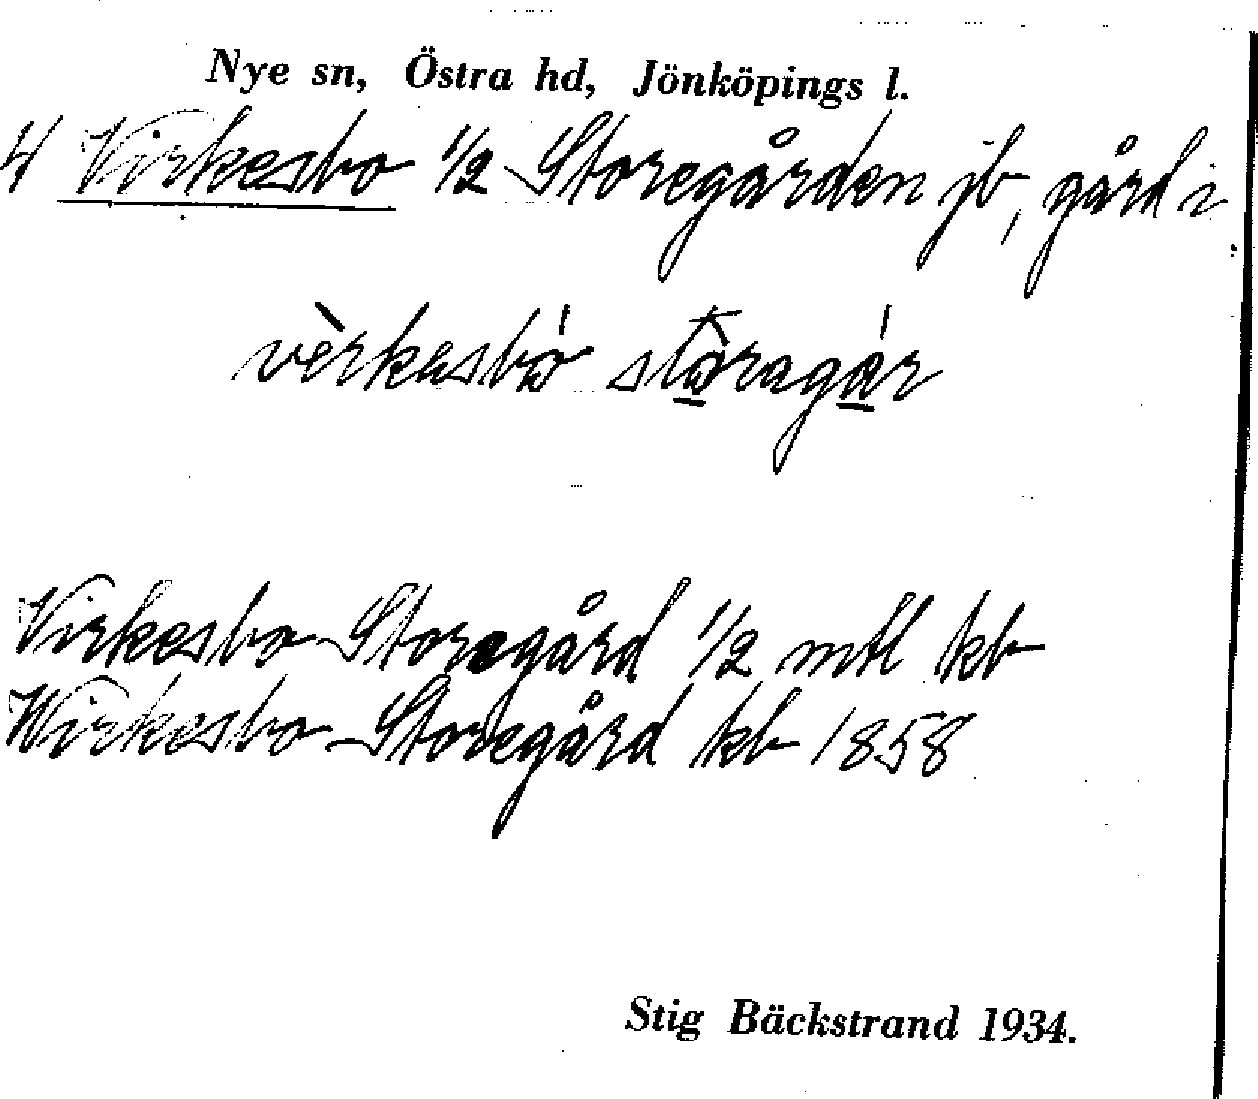 Nye sn, Östra hd, Jönköpings l.
4 Virkesbo 1/2 Storegården jb, gård i
vèrkasbó stòragár
Virkesbo Storegård 1/2 mtl kb
Wirkesbo-Storegård kb 1858
Stig Bäckstrand 1934.